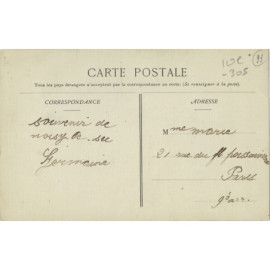 CARTE POSTALE
Tous les pays étrangers n'acceptent pas la correspondance au recto. (Se renseigner à la poste).
CORRESPONDANCE
ADRESSE
souvenir de
noisy le sec
Germaine
Mme marie
21 rue du fg poissonnière
Paris
9e arr.